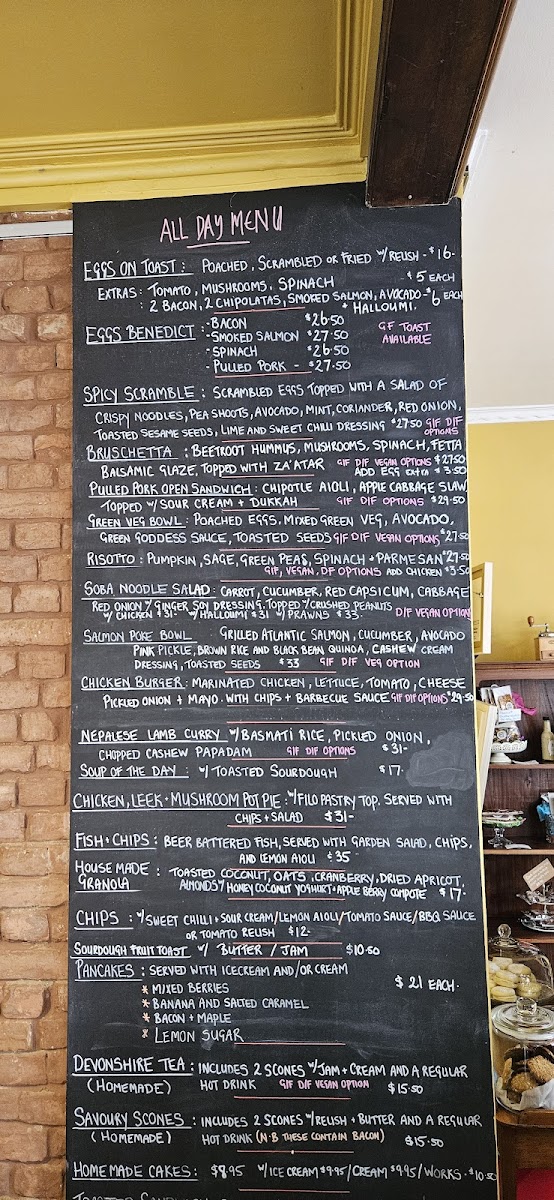 ALL DAY MENU
EGGS ON TOAST : POACHED, SCRAMBLED OR FRIED W/ RELISH - $16-
EXTRAS : TOMATO, MUSHROOMS, SPINACH - $5 EACH
: 2 BACON, 2 CHIPOLATAS, SMOKED SALMON, AVOCADO - $6 EACH
+ HALLOUMI.
EGGS BENEDICT : - BACON $26.50
- SMOKED SALMON $27.50
- SPINACH $26.50
- PULLED PORK - $27.50
GF TOAST
AVAILABLE
SPICY SCRAMBLE : SCRAMBLED EGGS TOPPED WITH A SALAD OF
CRISPY NOODLES, PEA SHOOTS, AVOCADO, MINT, CORIANDER, RED ONION,
TOASTED SESAME SEEDS, LIME AND SWEET CHILLI DRESSING $27.50 GIF DIF
OPTIONS
BRUSCHETTA : BEETROOT HUMMUS, MUSHROOMS, SPINACH, FETTA
BALSAMIC GLAZE, TOPPED WITH ZA'ATAR GIF DIF VEGAN OPTIONS $27.50
ADD EGG EXTRA $3.50
PULLED PORK OPEN SANDWICH : CHIPOTLE AIOLI, APPLE CABBAGE SLAW,
TOPPED W/ SOUR CREAM + DUKKAH GIF DIF OPTIONS $29.50
GREEN VEG BOWL : POACHED EGGS, MIXED GREEN VEG, AVOCADO,
GREEN GODDESS SAUCE, TOASTED SEEDS GIF DIF VEGAN OPTIONS $27.50
RISOTTO : PUMPKIN, SAGE, GREEN PEAS, SPINACH + PARMESAN $27.50
GIF, VEGAN, DF OPTIONS ADD CHICKEN $3.50
SOBA NOODLE SALAD : CARROT, CUCUMBER, RED CAPSICUM, CABBAGE
RED ONION W/ GINGER SOY DRESSING. TOPPED W/ CRUSHED PEANUTS
W/ CHICKEN $31- W/ HALLOUMI $31 W/ PRAWNS $33. DIF VEGAN OPTION
SALMON POKE BOWL GRILLED ATLANTIC SALMON, CUCUMBER, AVOCADO
PINK PICKLE, BROWN RICE AND BLACK BEAN QUINOA, CASHEW CREAM
DRESSING, TOASTED SEEDS $33 GIF DIF VEG OPTION
CHICKEN BURGER : MARINATED CHICKEN, LETTUCE, TOMATO, CHEESE
PICKLED ONION + MAYO. WITH CHIPS + BARBECUE SAUCE GIF DIF OPTIONS $29.50
NEPALESE LAMB CURRY W/ BASMATI RICE, PICKLED ONION,
CHOPPED CASHEW PAPADAM GIF DIF OPTIONS $31-
SOUP OF THE DAY : W/ TOASTED SOURDOUGH $17.
CHICKEN, LEEK + MUSHROOM POT PIE : W/ FILO PASTRY TOP. SERVED WITH
CHIPS + SALAD $31-
FISH + CHIPS : BEER BATTERED FISH, SERVED WITH GARDEN SALAD, CHIPS,
AND LEMON AIOLI $35
HOUSE MADE : TOASTED COCONUT, OATS, CRANBERRY, DRIED APRICOT,
GRANOLA ALMONDS W/ HONEY COCONUT YOGHURT + APPLE BERRY COMPOTE $17.
CHIPS : W/ SWEET CHILLI + SOUR CREAM/LEMON AIOLI/TOMATO SAUCE/BBQ SAUCE
OR TOMATO RELISH $12.
SOURDOUGH FRUIT TOAST W/ BUTTER / JAM $10.50
PANCAKES : SERVED WITH ICECREAM AND/OR CREAM
* MIXED BERRIES $21 EACH.
* BANANA AND SALTED CARAMEL
* BACON + MAPLE
* LEMON SUGAR
DEVONSHIRE TEA : INCLUDES 2 SCONES W/ JAM + CREAM AND A REGULAR
(HOMEMADE) HOT DRINK GIF DIF VEGAN OPTION $15.50
SAVOURY SCONES : INCLUDES 2 SCONES W/ RELISH + BUTTER AND A REGULAR
(HOMEMADE) HOT DRINK (N.B THESE CONTAIN BACON) $15.50
HOMEMADE CAKES : $8.95 W/ ICE CREAM $9.95/CREAM $9.95/WORKS - $10.50